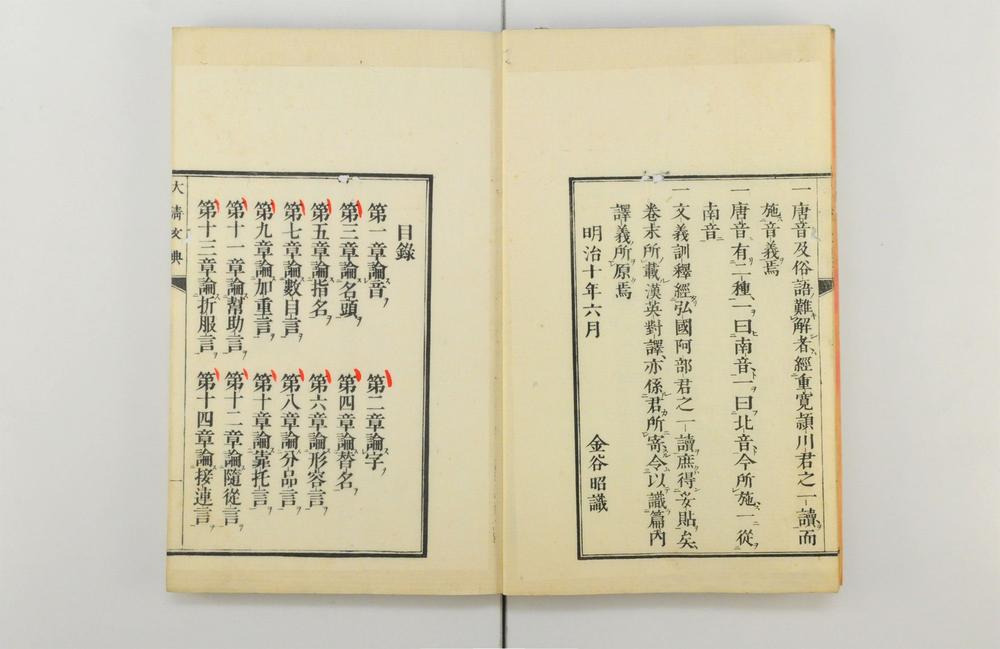 一唐音及俗語難解者經重寬潁川君之一讀而
施音義焉
一唐音有二種一曰南音一曰北音今所施一從
南音
一文義訓釋經弘國阿部君之一讀庶得妥貼矣
卷末所載漢英對譯亦係君所寄今以識篇內
譯義所原焉
明治十年六月
金谷昭識
目錄
第一章論音
第二章論字
第三章論名頭
第四章論替名
第五章論指名
第六章論形容言
第七章論數目言
第八章論分品言
第九章論加重言
第十章論靠托言
第十一章論幫助言
第十二章論隨從言
第十三章論折服言
第十四章論接連言
大清文典
一